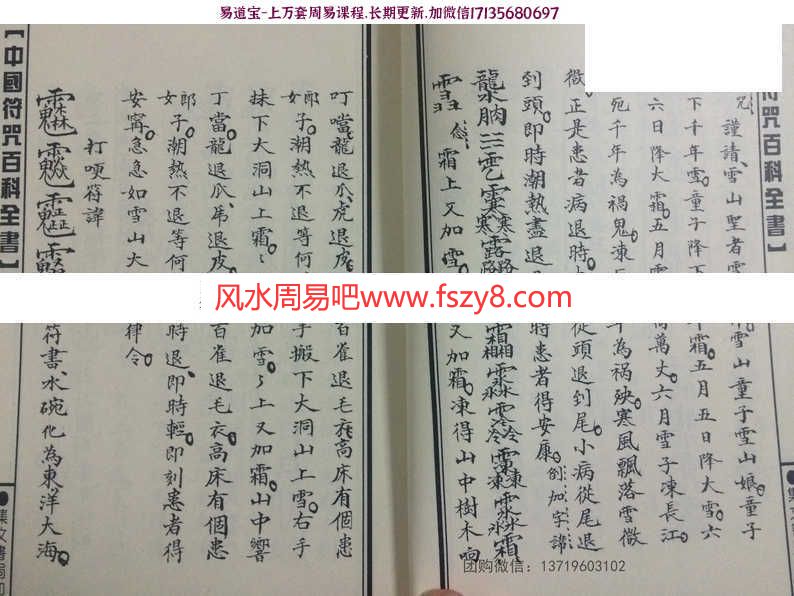 易道宝-上万套周易课程,长期更新,加微信17135680697
符咒百科全書】
咒謹請雪山聖者雪
雪山童子雪山娘童子
下千年雪童子降下
千霜五月五日降大雪六
六日降大霜五月雪
萬丈六月雪子凍長江
死千年為禍鬼凍
千為禍殃寒風飄落雪微
微正是患者病退時
從頭退到尾小病從尾退
到頭即時潮熱盡退
時患者得安康創加字諱
雪念霜上又加雪
又加霜凍得山中樹木响
叮噹龍退瓜虎退皮
百雀退毛衣高床有個患
郎女子潮熱不退等何
手搬下大洞山上雪右手
抹下大洞山上霜
加雪上又加霜山中響
丁當龍退瓜吊退皮
百雀退毛衣高床有個患
郎女子潮熱不退等何
時退即時輕即刻患者得
安寧急急如雪山大
律令
打哽符諱
符書水碗化為東洋大海
【中國符咒百科全書】
●集文書局印
风水周易吧www.fszy8.com
团购微信：13719603102